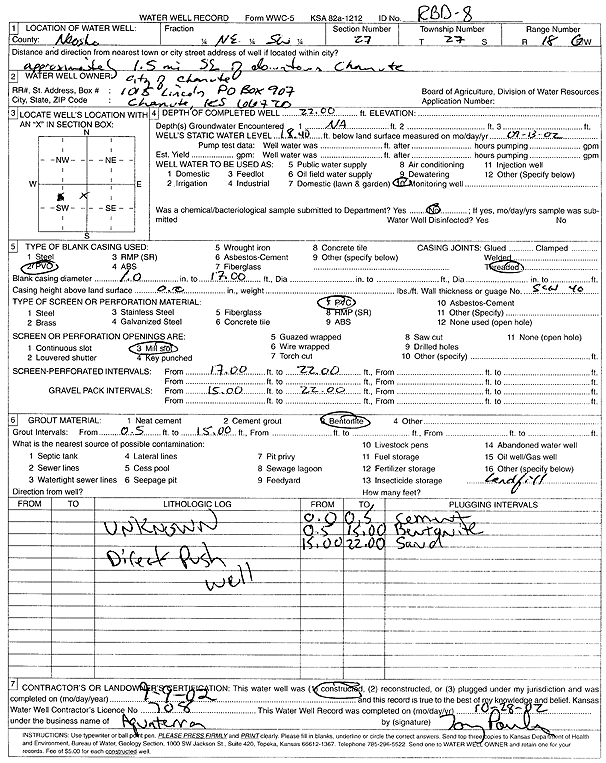 WATER WELL RECORD Form WWC-5 KSA 82a-1212 ID No. RBD-8
1 LOCATION OF WATER WELL: Fraction Section Number Township Number Range Number
County: Neosho ¼ NE ¼ SW ¼ 27 T 27 S R 18 E/W
Distance and direction from nearest town or city street address of well if located within city?
approximatel 1.5 mi SE of downtown Chanute
2 WATER WELL OWNER: City of Chanute
RR#, St. Address, Box # : 1015 Lincoln PO Box 907 Board of Agriculture, Division of Water Resources
City, State, ZIP Code : Chanute, KS 66720 Application Number:
3 LOCATE WELL'S LOCATION WITH AN "X" IN SECTION BOX:
N
NW NE
W E
X
SW SE
S
4 DEPTH OF COMPLETED WELL 22.00 ft. ELEVATION:
Depth(s) Groundwater Encountered 1 NA ft. 2 ft. 3 ft.
WELL'S STATIC WATER LEVEL 18.40 ft. below land surface measured on mo/day/yr 09-13-02
Pump test data: Well water was ft. after hours pumping gpm
Est. Yield gpm: Well water was ft. after hours pumping gpm
WELL WATER TO BE USED AS: 5 Public water supply 8 Air conditioning 11 Injection well
1 Domestic 3 Feedlot 6 Oil field water supply 9 Dewatering 12 Other (Specify below)
2 Irrigation 4 Industrial 7 Domestic (lawn & garden) 10 Monitoring well
Was a chemical/bacteriological sample submitted to Department? Yes No ; If yes, mo/day/yrs sample was submitted
Water Well Disinfected? Yes No
5 TYPE OF BLANK CASING USED: 5 Wrought iron 8 Concrete tile CASING JOINTS: Glued Clamped
1 Steel 3 RMP (SR) 6 Asbestos-Cement 9 Other (specify below) Welded
2 PVC 4 ABS 7 Fiberglass Threaded
Blank casing diameter 1.0 in. to 17.00 ft., Dia in. to ft., Dia in. to ft.
Casing height above land surface in., weight lbs./ft. Wall thickness or guage No. SCH 40
TYPE OF SCREEN OR PERFORATION MATERIAL: 7 PVC 10 Asbestos-Cement
1 Steel 3 Stainless Steel 5 Fiberglass 8 RMP (SR) 11 Other (Specify)
2 Brass 4 Galvanized Steel 6 Concrete tile 9 ABS 12 None used (open hole)
SCREEN OR PERFORATION OPENINGS ARE: 5 Guazed wrapped 8 Saw cut 11 None (open hole)
1 Continuous slot 3 Mill slot 6 Wire wrapped 9 Drilled holes
2 Louvered shutter 4 Key punched 7 Torch cut 10 Other (specify) ft.
SCREEN-PERFORATED INTERVALS: From 17.00 ft. to 22.00 ft., From ft. to ft.
From ft. to ft., From ft. to ft.
GRAVEL PACK INTERVALS: From 15.00 ft. to 22.00 ft., From ft. to ft.
From ft. to ft., From ft. to ft.
6 GROUT MATERIAL: 1 Neat cement 2 Cement grout 3 Bentonite 4 Other
Grout Intervals: From 0.5 ft. to 15.00 ft., From ft. to ft., From ft. to ft.
What is the nearest source of possible contamination: 10 Livestock pens 14 Abandoned water well
1 Septic tank 4 Lateral lines 7 Pit privy 11 Fuel storage 15 Oil well/Gas well
2 Sewer lines 5 Cess pool 8 Sewage lagoon 12 Fertilizer storage 16 Other (specify below)
3 Watertight sewer lines 6 Seepage pit 9 Feedyard 13 Insecticide storage Landfill
Direction from well? How many feet?
FROM TO LITHOLOGIC LOG FROM TO PLUGGING INTERVALS
UNKNOWN 0.0 0.5 Cement
0.5 15.00 Bentonite
15.00 22.00 Sand
Direct Push
well
7 CONTRACTOR'S OR LANDOWNER'S CERTIFICATION: This water well was (1) constructed, (2) reconstructed, or (3) plugged under my jurisdiction and was
completed on (mo/day/year) 9-9-02 and this record is true to the best of my knowledge and belief. Kansas
Water Well Contractor's Licence No 708 This Water Well Record was completed on (mo/day/yr) 10-28-02
under the business name of Aquaterra by (signature)
INSTRUCTIONS: Use typewriter or ball point pen. PLEASE PRESS FIRMLY and PRINT clearly. Please fill in blanks, underline or circle the correct answers. Send top three copies to Kansas Department of Health
and Environment, Bureau of Water, Geology Section, 1000 SW Jackson St., Suite 420, Topeka, Kansas 66612-1367. Telephone 785-296-5522. Send one to WATER WELL OWNER and retain one for your
records. Fee of $5.00 for each constructed well.